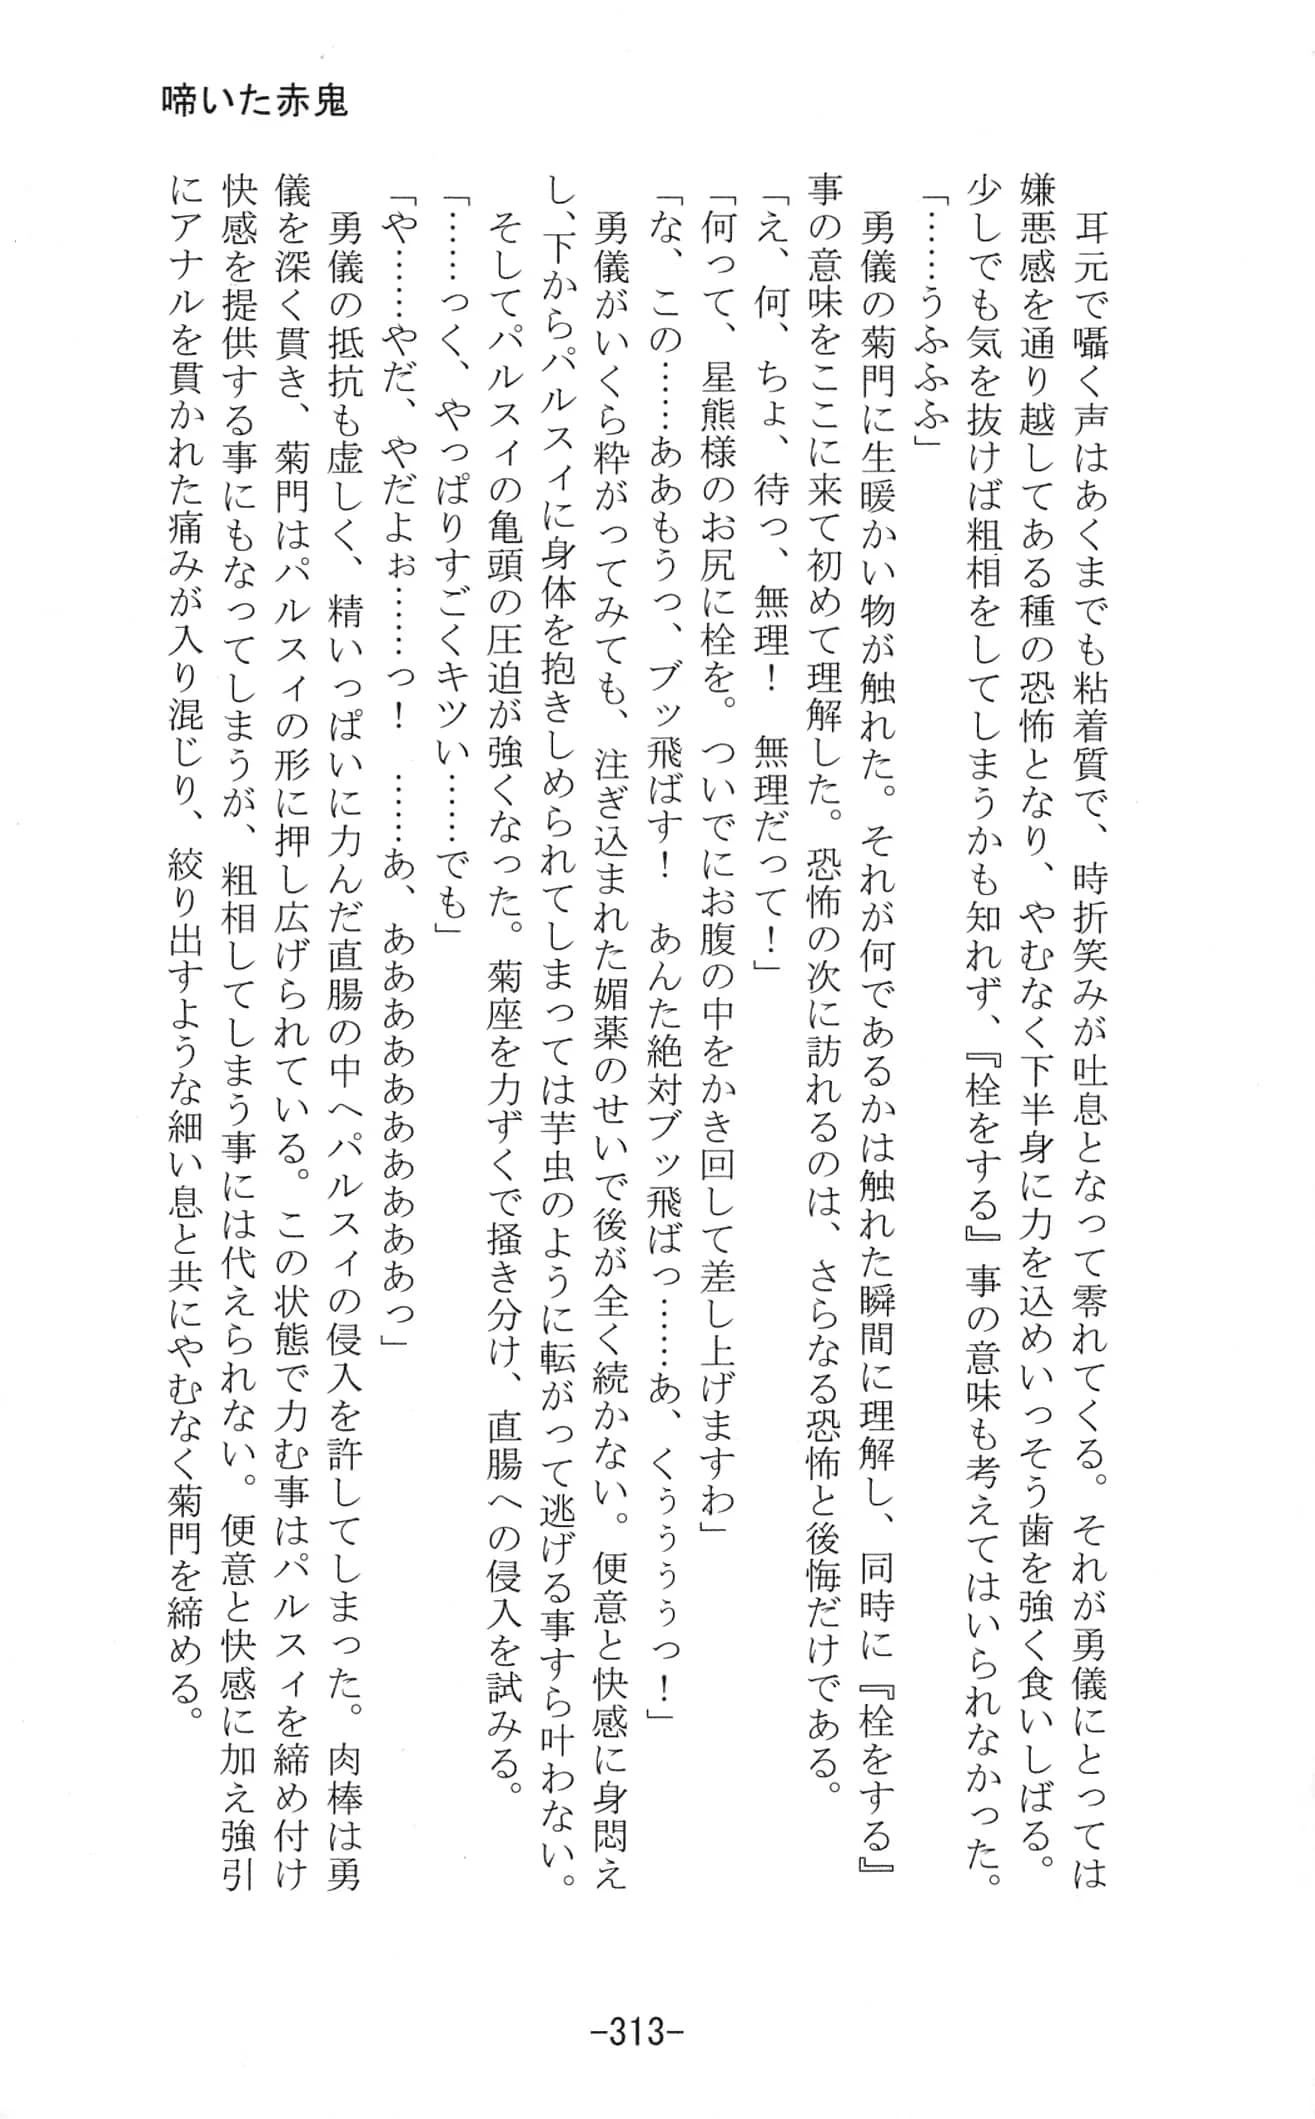 啼いた赤鬼
耳元で囁く声はあくまでも粘着質で、時折笑みが吐息となって零れてくる。それが勇儀にとっては
嫌悪感を通り越してある種の恐怖となり、やむなく下半身に力を込めいっそう歯を強く食いしばる。
少しでも気を抜けば粗相をしてしまうかも知れず、『栓をする』事の意味も考えてはいられなかった。
「……うふふふ」
勇儀の菊門に生暖かい物が触れた。それが何であるかは触れた瞬間に理解し、同時に『栓をする』
事の意味をここに来て初めて理解した。恐怖の次に訪れるのは、さらなる恐怖と後悔だけである。
「え、何、ちょ、待っ、無理！　無理だって！」
「何って、星熊様のお尻に栓を。ついでにお腹の中をかき回して差し上げますわ」
「な、この……ああもうっ、ブッ飛ばす！　あんた絶対ブッ飛ばっ……あ、くぅぅぅぅっ！」
勇儀がいくら粋がってみても、注ぎ込まれた媚薬のせいで後が全く続かない。便意と快感に身悶え
し、下からパルスィに身体を抱きしめられてしまっては芋虫のように転がって逃げる事すら叶わない。
そしてパルスィの亀頭の圧迫が強くなった。菊座を力ずくで掻き分け、直腸への侵入を試みる。
「……っく、やっぱりすごくキツい……でも」
「や……やだ、やだよぉ……っ！　……あ、ああああああああああっ」
勇儀の抵抗も虚しく、精いっぱいに力んだ直腸の中へパルスィの侵入を許してしまった。肉棒は勇
儀を深く貫き、菊門はパルスィの形に押し広げられている。この状態で力む事はパルスィを締め付け
快感を提供する事にもなってしまうが、粗相してしまう事には代えられない。便意と快感に加え強引
にアナルを貫かれた痛みが入り混じり、絞り出すような細い息と共にやむなく菊門を締める。
-313-